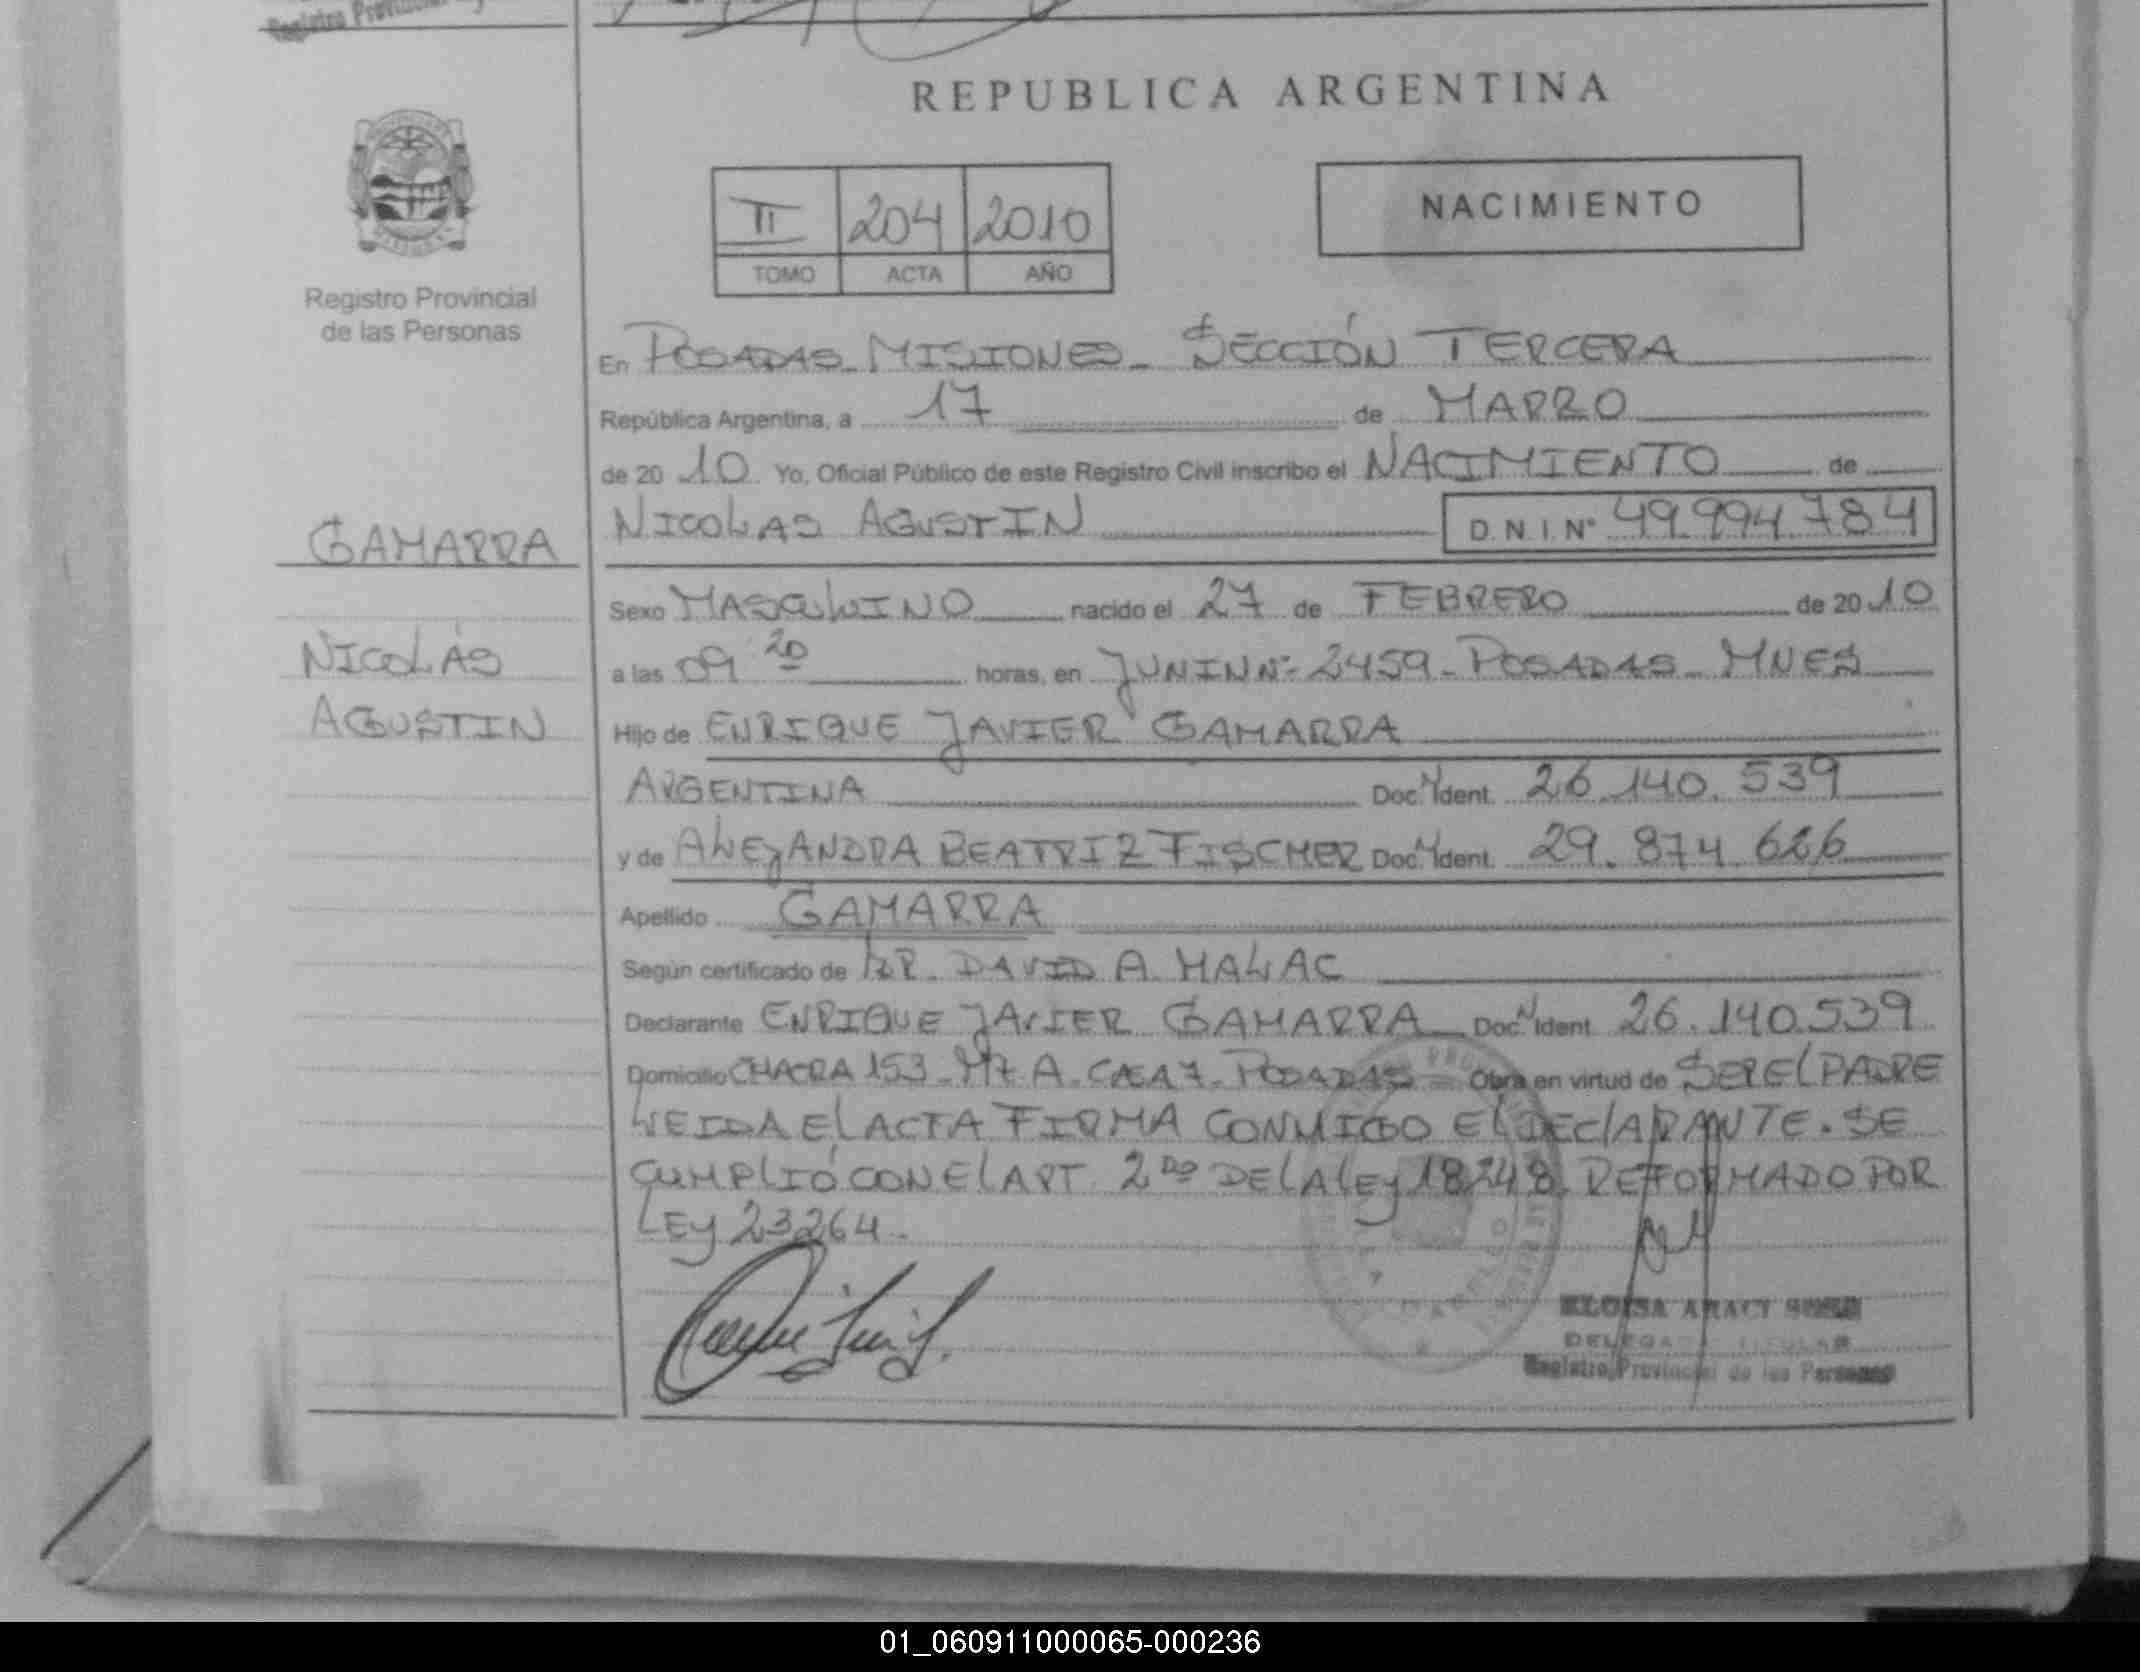 Registro Provincial
REPUBLICA ARGENTINA
II 204 2010
TOMO ACTA AÑO
NACIMIENTO
Registro Provincial
de las Personas
En POSADAS - MISIONES - SECCIÓN TERCERA
República Argentina, a 17 de MARZO
de 20 10 Yo, Oficial Público de este Registro Civil inscribo el NACIMIENTO de
GAMARRA
NICOLAS AGUSTIN D.N.I. Nº 49.994.784
Sexo MASCULINO nacido el 27 de FEBRERO de 20 10
NICOLÁS
a las 09 20 horas, en JUNIN Nº 2459 - POSADAS - MNES
AGUSTIN
Hijo de ENRIQUE JAVIER GAMARRA
ARGENTINA Doc. N Ident. 26.140.539
y de ALEJANDRA BEATRIZ FISCHER Doc. N Ident. 29.874.626
Apellido GAMARRA
Según certificado de DR. DAVID A. MALAC
Declarante ENRIQUE JAVIER GAMARRA Doc. N Ident. 26.140.539
Domicilio CHACRA 153 - MZ A - CASA 7 - POSADAS - Obra en virtud de SER EL PADRE
LEIDA EL ACTA FIRMA CONMIGO EL DECLARANTE. SE
CUMPLIÓ CON EL ART. 2DO DE LA LEY 18248. REFORMADO POR
LEY 23264.-
ELOISA ARACY
DELEGADA TITULAR
Registro Provincial de las Personas
01_060911000065-000236